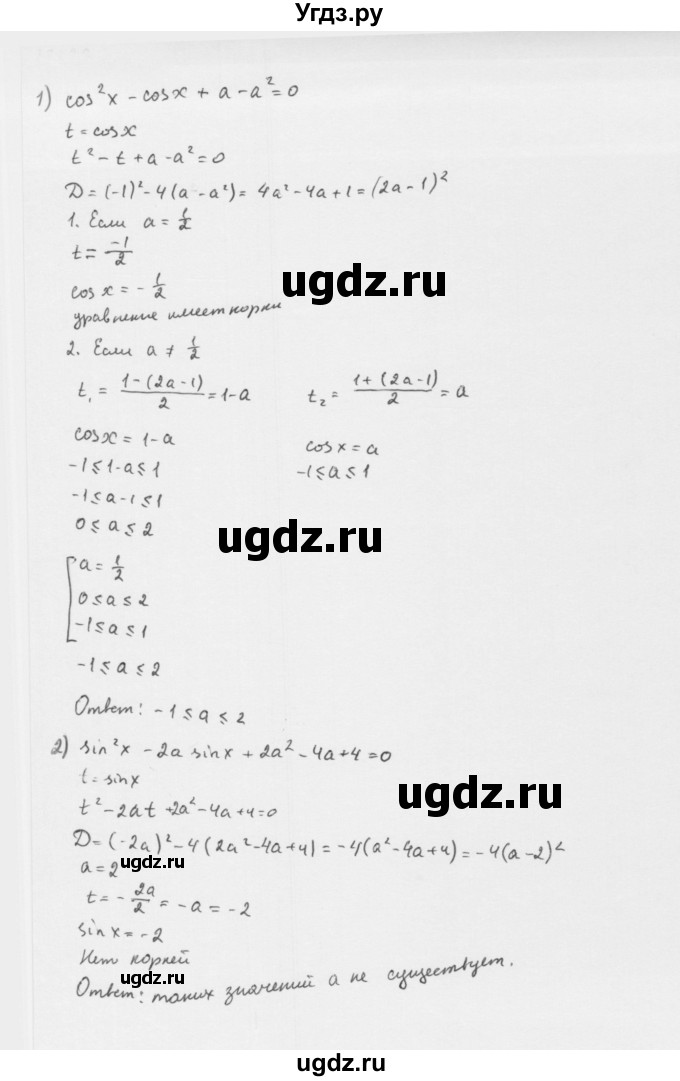 Угдз.ру
1) cos²x - cosx + a - a² = 0
t = cosx
t² - t + a - a² = 0
D = (-1)² - 4(a - a²) = 4a² - 4a + 1 = (2a - 1)²
1. Если a = 1/2
t = -1/2
cos x = - 1/2
ugdz.ru
уравнение имеет корни
2. Если a ≠ 1/2
t₁ = (1 - (2a - 1))/2 = 1 - a t₂ = (1 + (2a - 1))/2 = a
cosx = 1 - a cos x = a
-1 ≤ 1 - a ≤ 1 -1 ≤ a ≤ 1
-1 ≤ a - 1 ≤ 1
0 ≤ a ≤ 2
ugdz.ru
[ a = 1/2
0 ≤ a ≤ 2
-1 ≤ a ≤ 1
-1 ≤ a ≤ 2
Ответ: -1 ≤ a ≤ 2
2) sin²x - 2a sinx + 2a² - 4a + 4 = 0
t = sinx
ugdz.ru
t² - 2at + 2a² - 4a + 4 = 0
D = (-2a)² - 4(2a² - 4a + 4) = -4(a² - 4a + 4) = -4(a - 2)²
ugdz.ru
a = 2
t = - 2a/2 = -a = -2
sin x = -2
Нет корней
ugdz.ru
Ответ: таких значений a не существует.
ugdz.ru